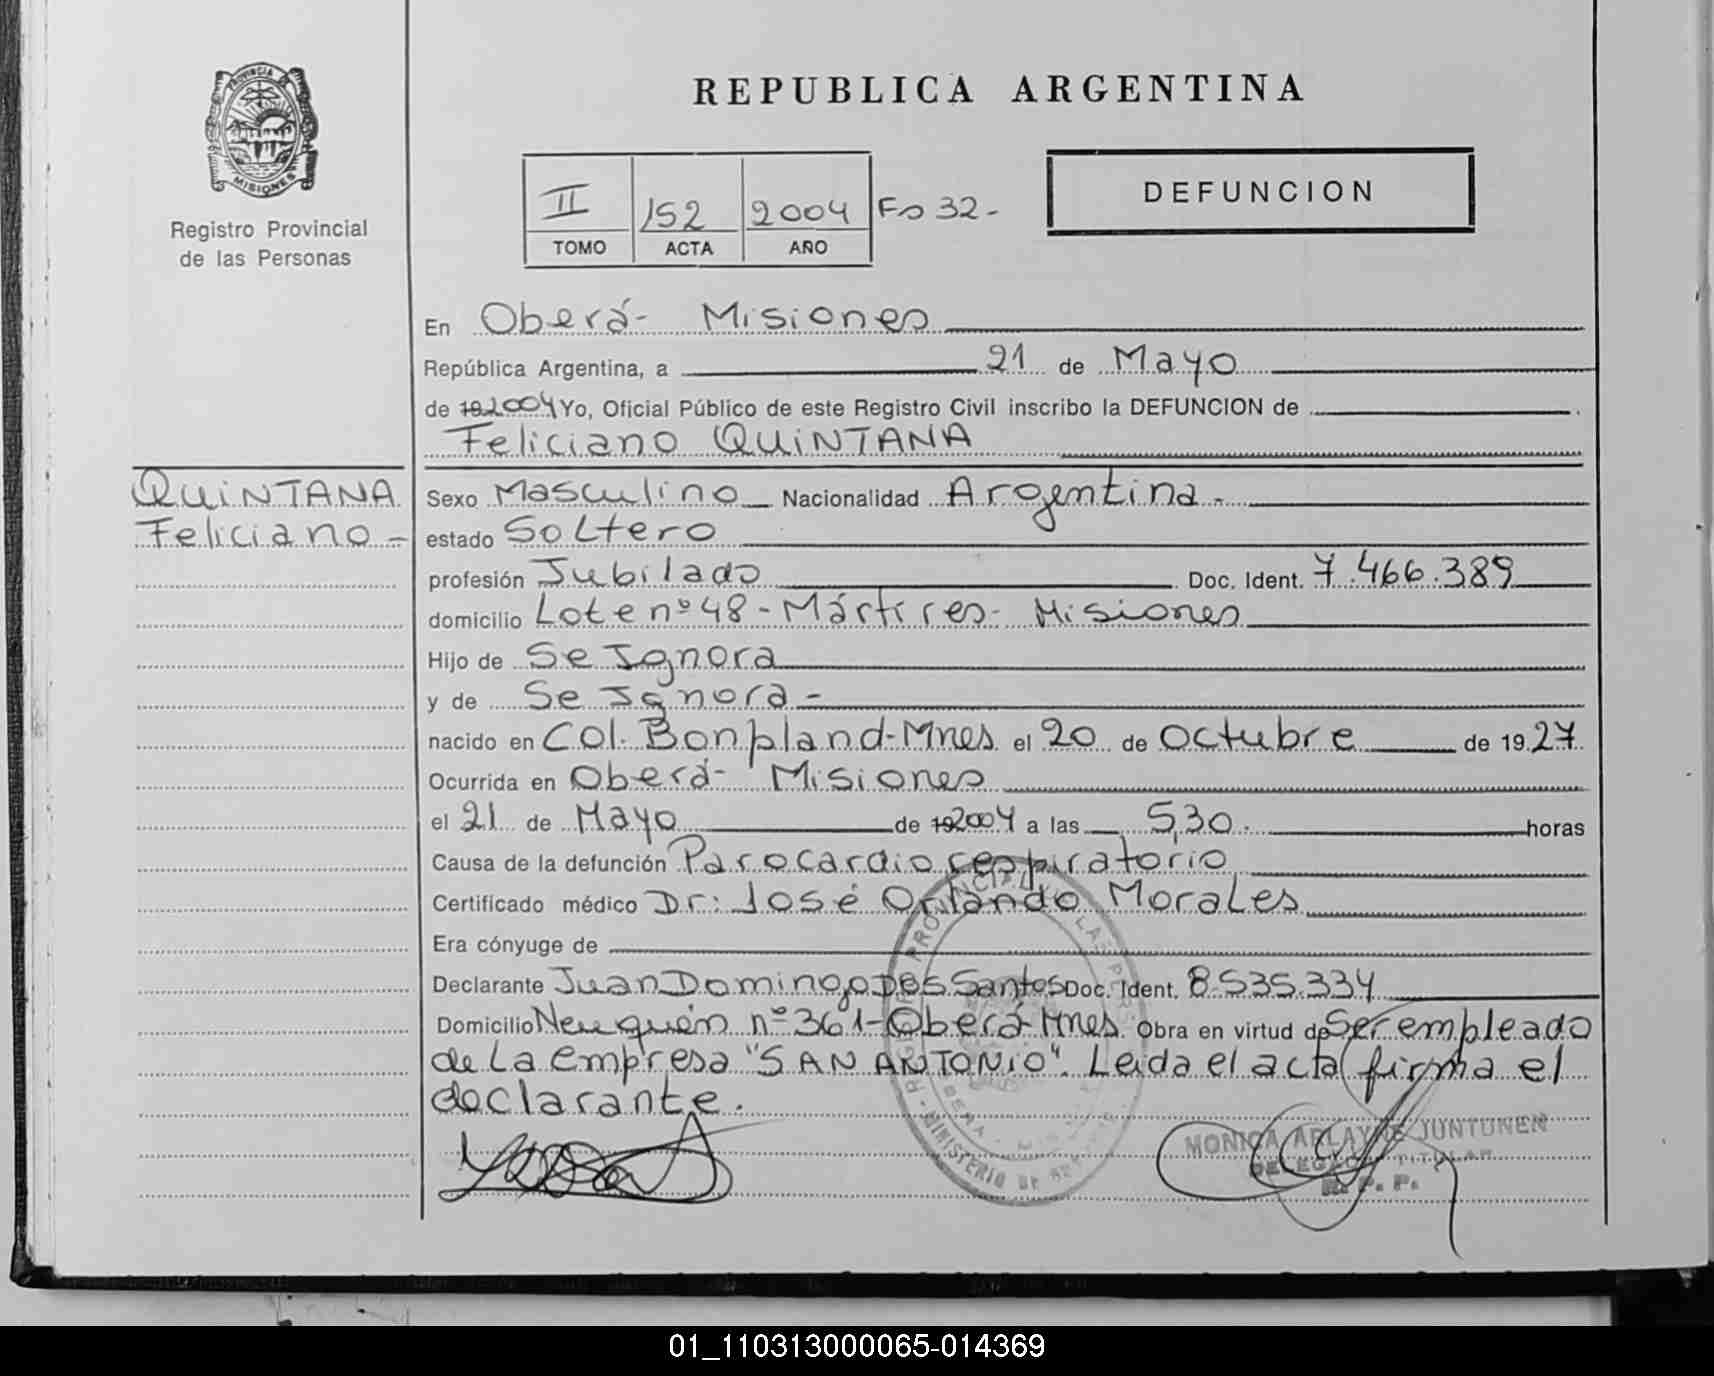 PROVINCIA DE
MISIONES
Registro Provincial
de las Personas
REPUBLICA ARGENTINA
II 152 2004 Fo 32-
TOMO ACTA AÑO
DEFUNCION
En Oberá- Misiones
República Argentina, a 21 de Mayo
de 192004 Yo, Oficial Público de este Registro Civil inscribo la DEFUNCION de
Feliciano QUINTANA
QUINTANA
Feliciano-
Sexo Masculino Nacionalidad Argentina-
estado Soltero
profesión Jubilado Doc. Ident. 7.466.389
domicilio Lote nº 48-Mártires- Misiones
Hijo de Se Ignora
y de Se Ignora-
nacido en Col. Bonpland-Mnes el 20 de Octubre de 1927
Ocurrida en Oberá- Misiones
el 21 de Mayo de 192004 a las 5,30. horas
Causa de la defunción Parocardiorespiratorio
Certificado médico Dr: José Orlando Morales
Era cónyuge de
Declarante Juan Domingo Dos Santos Doc. Ident. 8.535.334
Domicilio Neuquén nº 361-Oberá-Mnes. Obra en virtud de Ser empleado
de La empresa "SAN ANTONIO". Leida el acta firma el
declarante.
MONICA ARLAYNE JUNTUNEN
DELEGADA TITULAR
R. P. P.
01_110313000065-014369